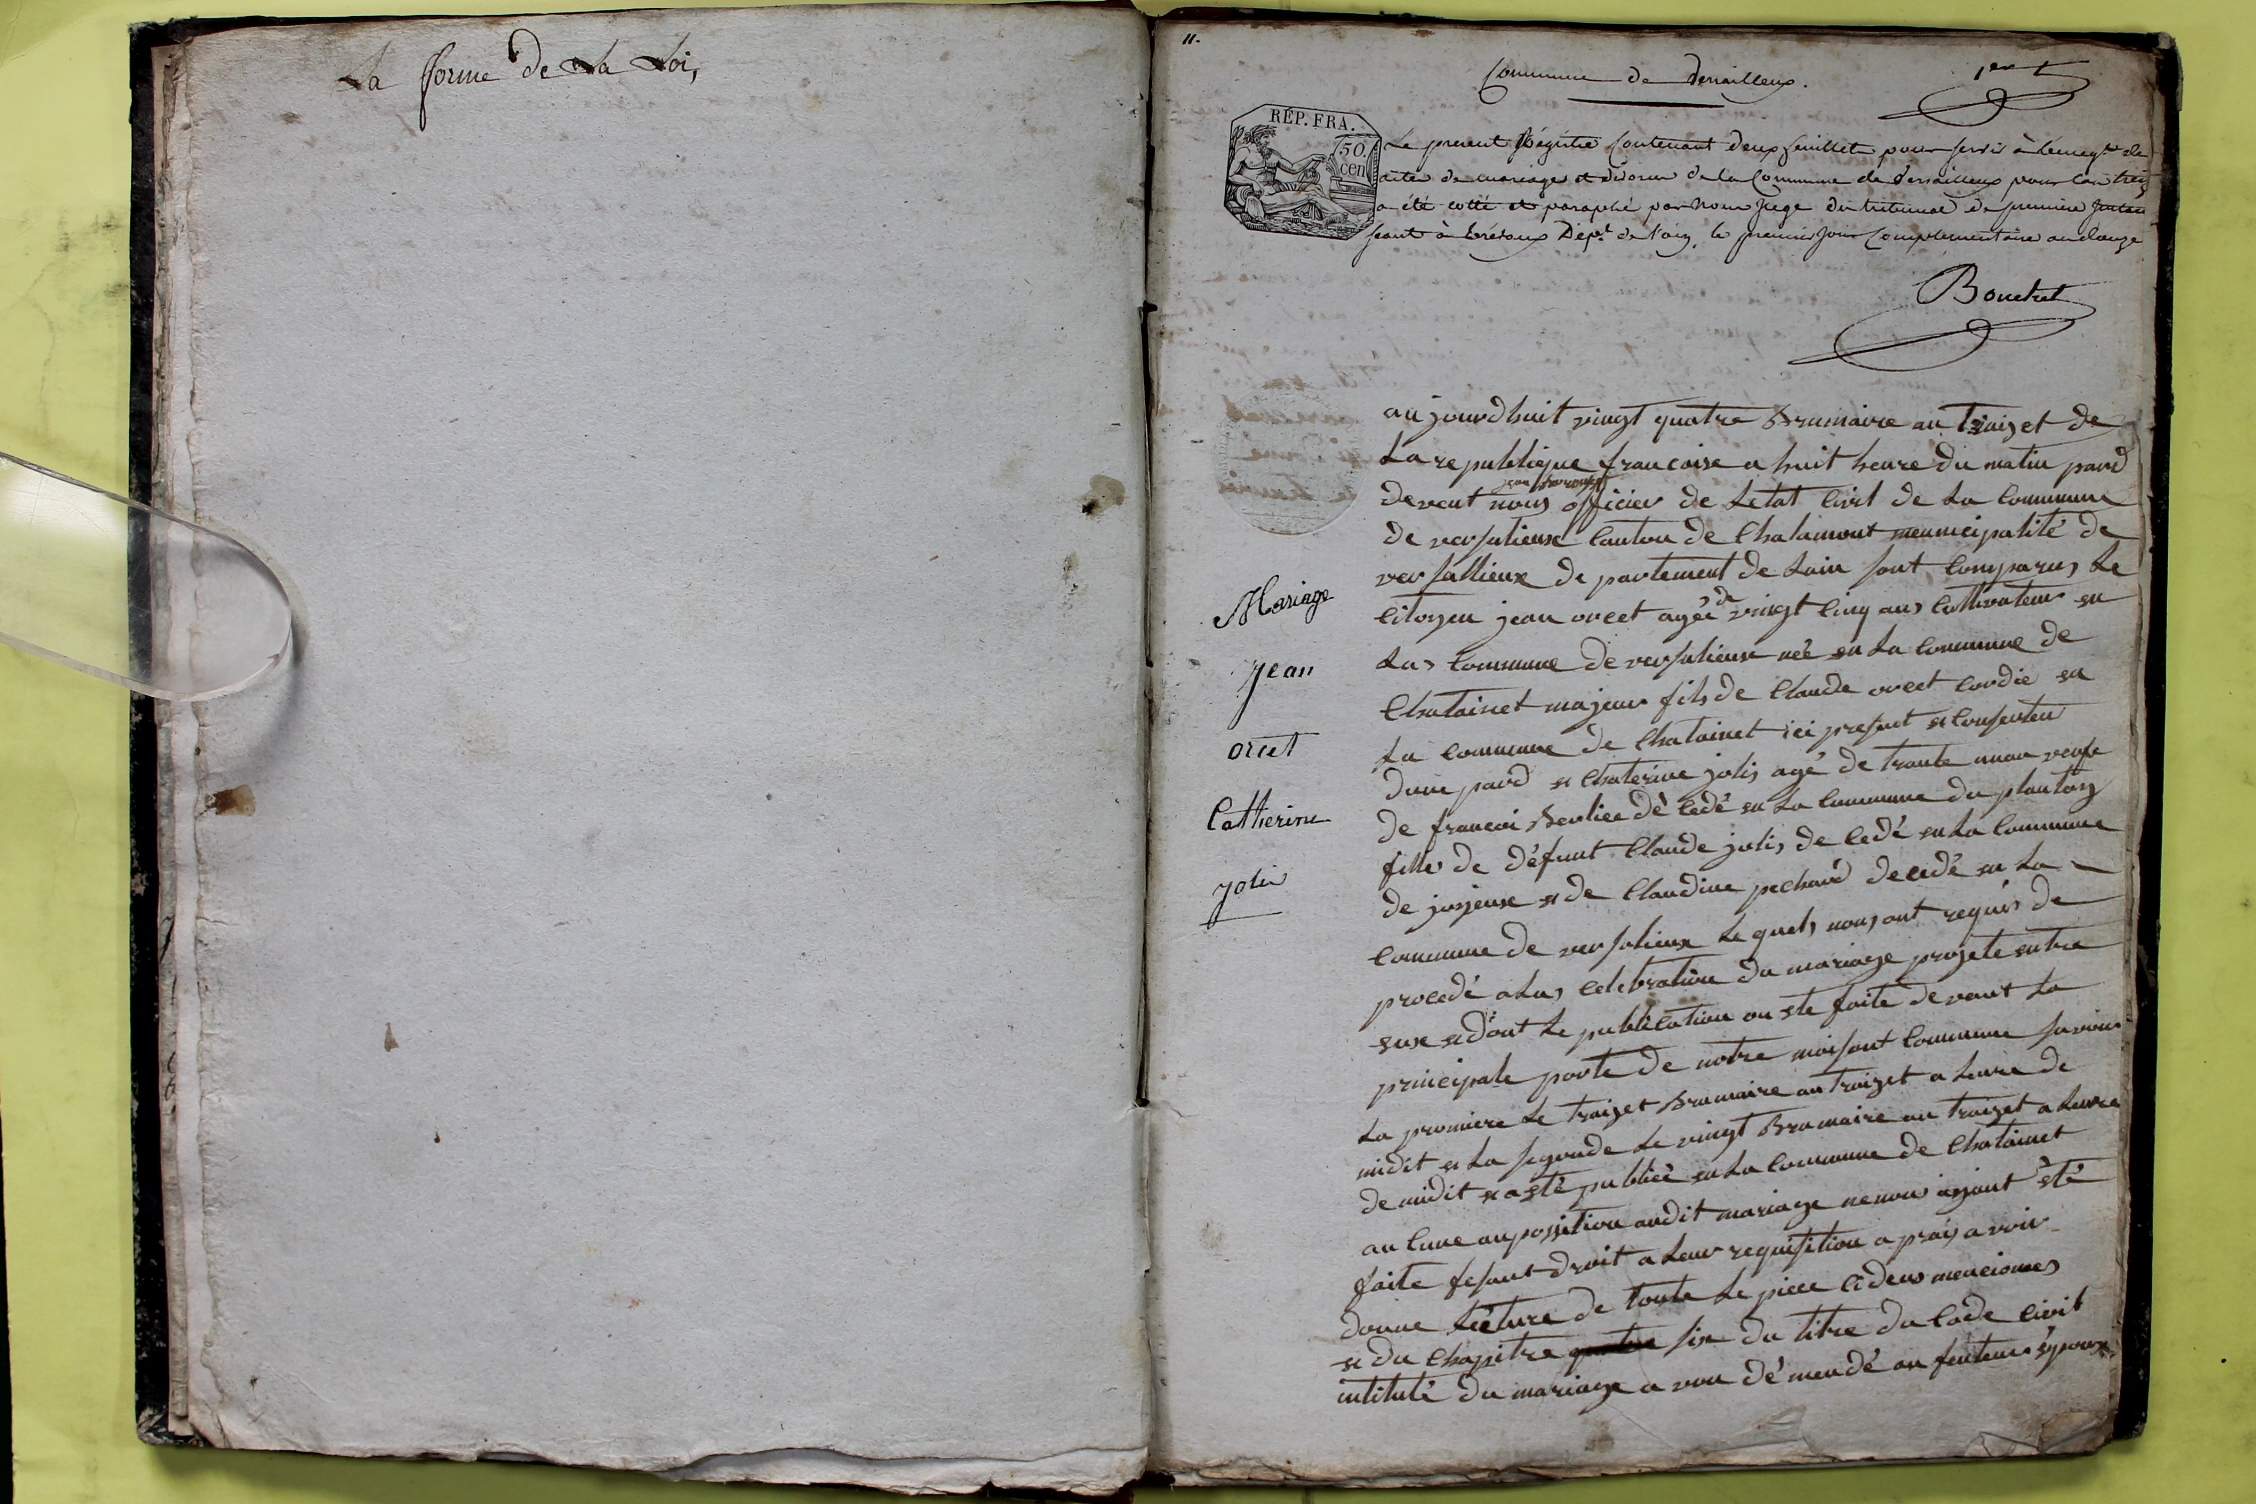 La forme de La Loi,
11.
Commune de Versailleux.
1er
RÉP. FRA.
50
cen
Le present Régistre Contenant deux feuillets pour servir à l'enregt. de
actes de mariage et divorce de la Commune de Versailleux pour l'an treiz
a été cotté et paraphé par Nous Juge du tribunal de première Instan
séant à Trévoux Dépt. de l'ain, le premier Jour Complémentaire an douze
Bouchet
aujourdhuit vingt quatre Brumaire an traizet de
La republique francoise a huit heure du matin pard
devent nous officier de Letat Civil de La Commune
de versalieux Canton de Chalamont meunicipalité de
versallieux de partement de Lain sont Comparus Le
Citoyen jean orcet ageé de vingt Cinq ans Cultivateur en
Las Commune de versalieux neé en La Commune de
Chatainet majeur fils de Claude orcet Cordié en
La Commune de Chatainet ici present et Consenten
dune pard et Chaterine jolis agé de trante un an veufe
de francoi Berliee dé cedé en La Commune du plantay
fille de défunt Claude jolis de cedé en La Commune
de joyjeux et de Claudine pechard decedé en La
Commune de versalieux Le quels nous ont requis de
procedé a Las Celebration du mariage projete entre
eux et dont Le publication on ete faite devant La
principale porte de notre maisont Commune savoir
La promiere Le traizet Brumaire an traizet a Leure de
midit et La segonde Le vingt Brumaire an traizet a Leure
de midit et a eté publieé en La Commune de Chatainet
au Cune auposition audit mariage ne nous ayant été
faite fesant droit a Leur requisition a prais avoir
donne Lecture de toute Le piece Cideus mencionnes
et du Chapitre six du titre du Code Civil
intitulé du mariage a von dé mendé au feuteur époux
Mariage
Jean
orcet
Catherine
Jolis